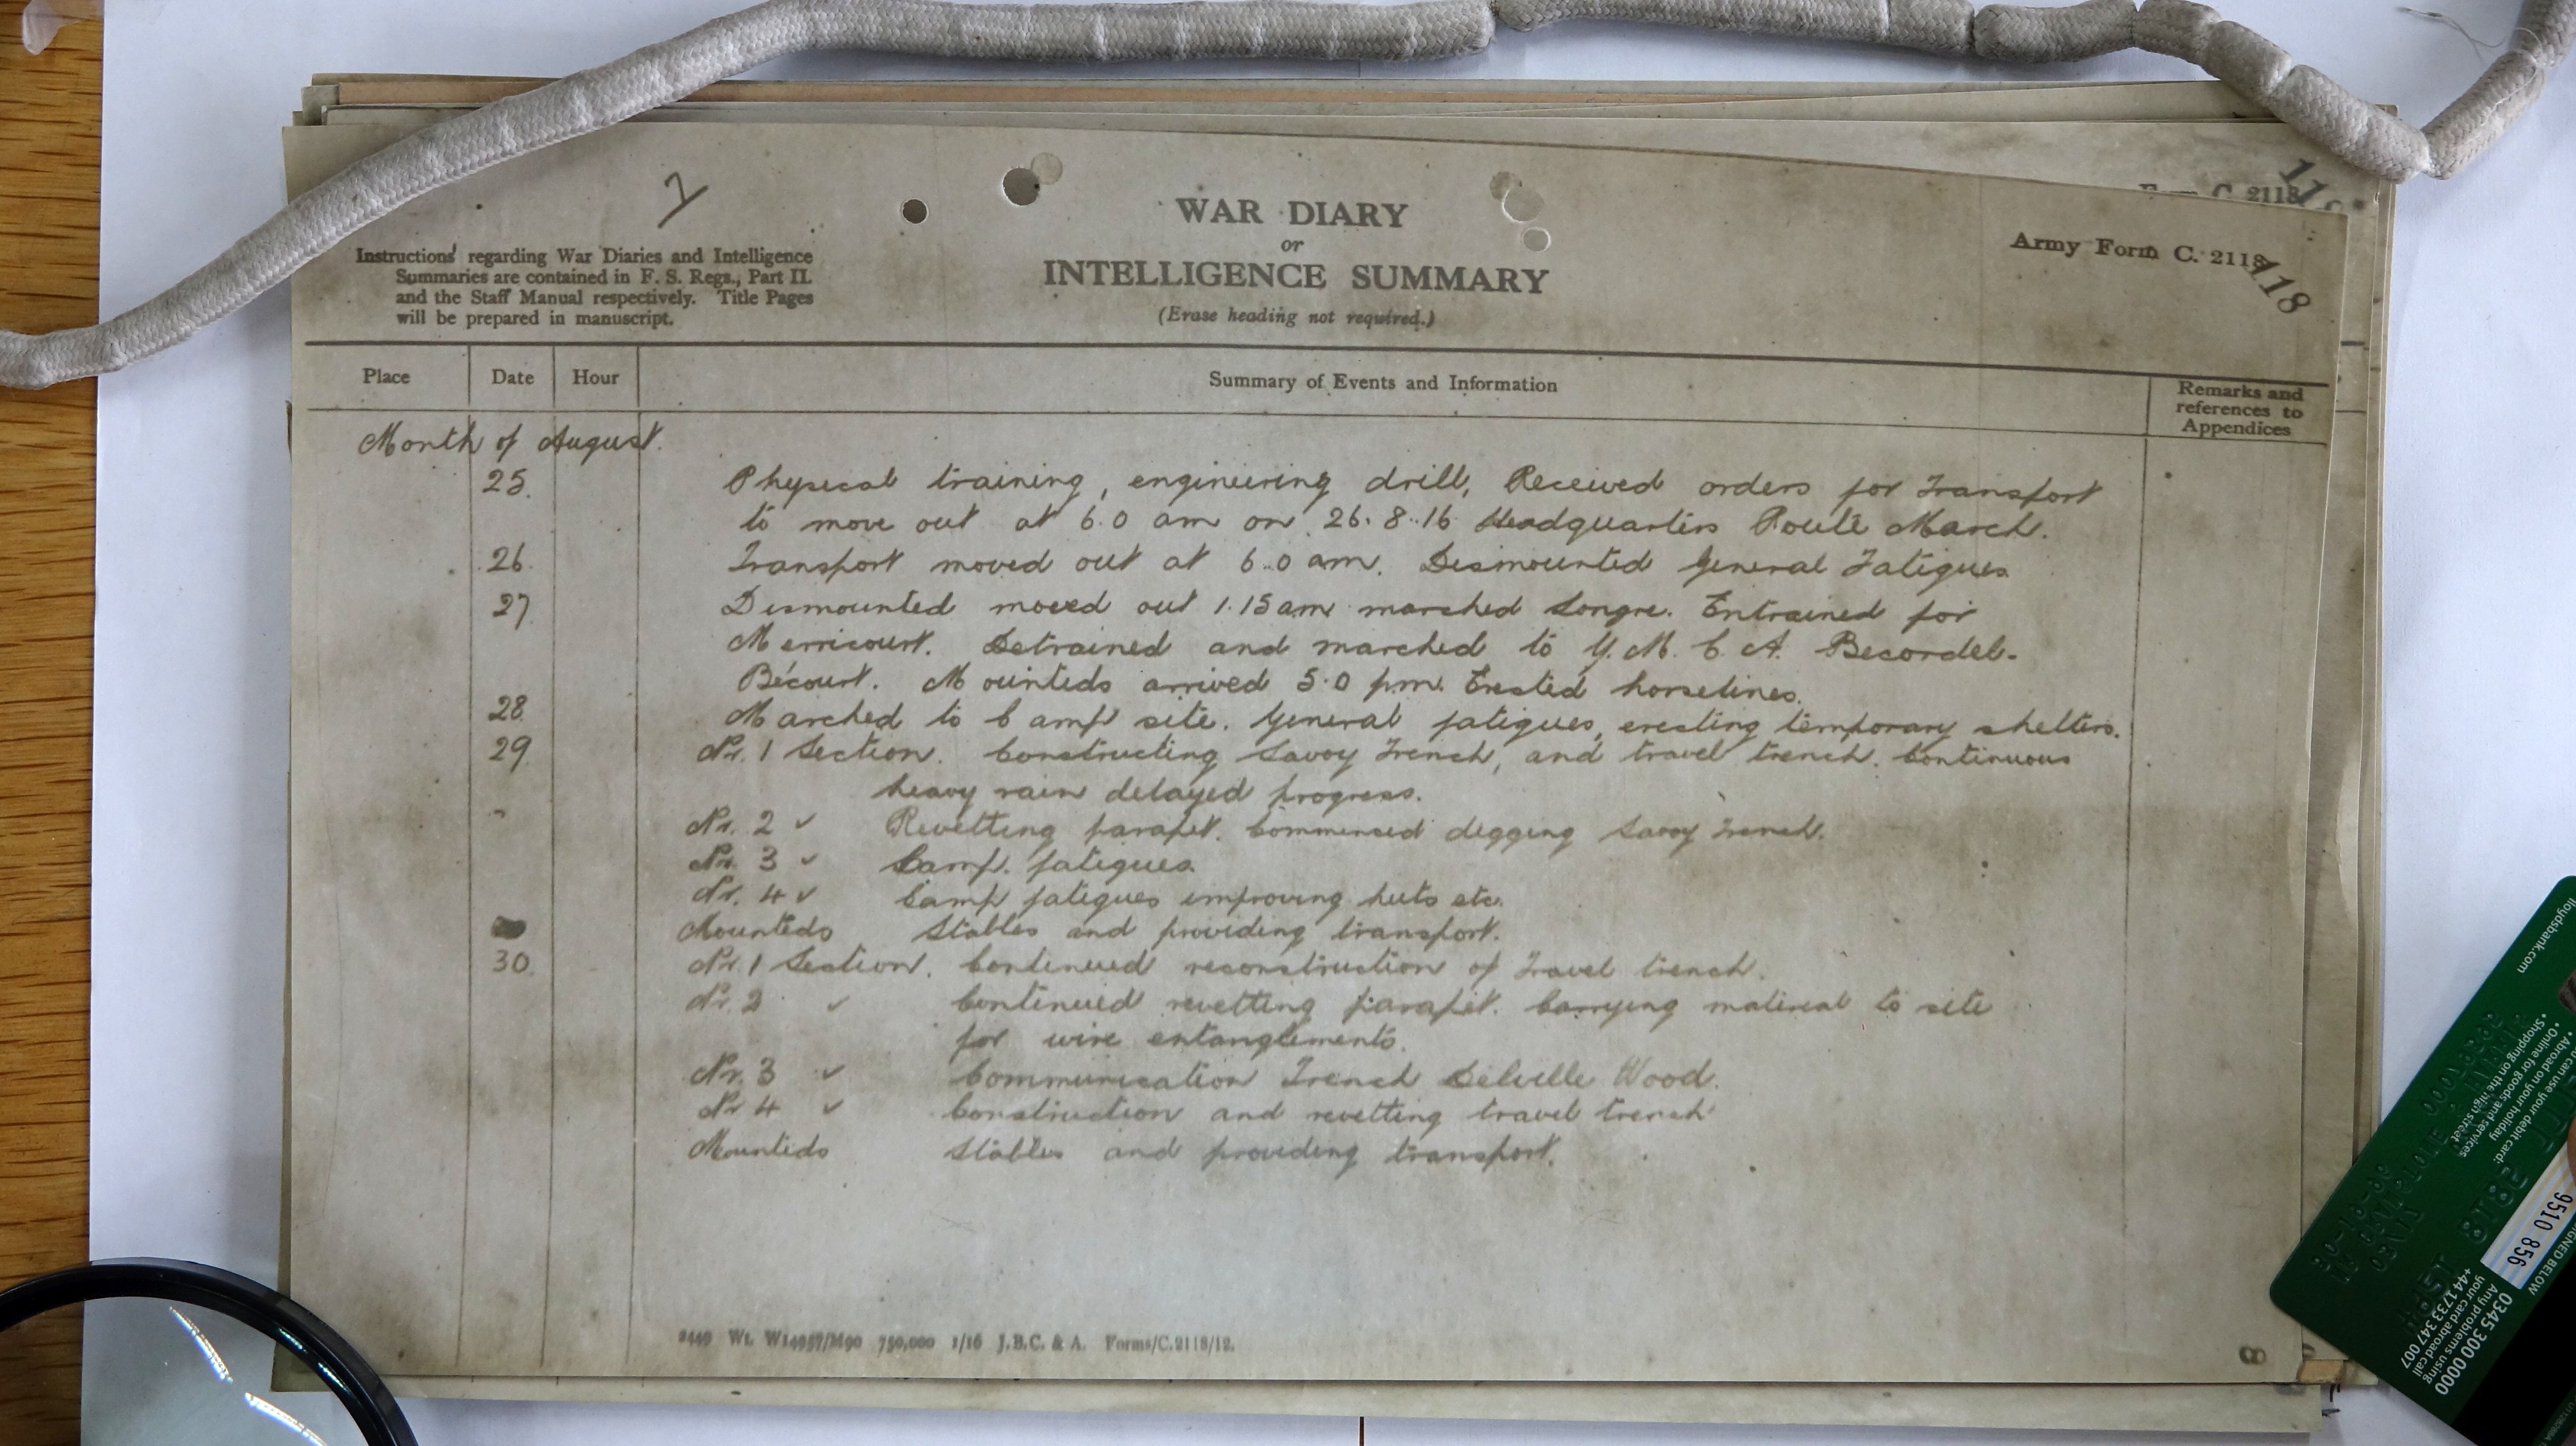 7
WAR DIARY
or
INTELLIGENCE SUMMARY
(Erase heading not required.)
Instructions regarding War Diaries and Intelligence
Summaries are contained in F. S. Regs., Part II.
and the Staff Manual respectively. Title Pages
will be prepared in manuscript.
Form C. 2118
Army Form C. 2118
118
Place Date Hour Summary of Events and Information Remarks and
references to
Appendices
Month of August.
25. Physical training, engineering drill, Received orders for Transport
to move out at 6.0 am on 26.8.16 Headquarters Route March.
26. Transport moved out at 6.0 am. Dismounted General Fatigues
27. Dismounted moved out 1.15 am marched Longre. Entrained for
Merricourt. Detrained and marched to Y.M.C.A. Becordel-
Bécourt. Mounteds arrived 5.0 pm. Erected horselines.
28. Marched to Camp site. General fatigues, erecting temporary shelters.
29 Nr. 1 Section. Constructing Savoy Trench, and travel trench. Continuous
heavy rain delayed progress.
Nr. 2 " Revetting parapet. Commenced digging Savoy Trench.
Nr. 3 " Camp. fatigues.
Nr. 4 " Camp fatigues improving huts etc.
Mounteds Stables and providing transport.
30. Nr. 1 Section. Continued reconstruction of Travel trench.
Nr. 2 " Continued revetting parapet. Carrying material to site
for wire entanglements.
Nr. 3 " Communication Trench Delville Wood.
Nr 4 " Construction and revetting travel trench
Mounteds Stables and providing transport.
2449 Wt. W14957/M90 750,000 1/16 J.B.C. & A. Forms/C.2118/12.
8
lloydsbank.com
• Online for goods and services
• Shopping on the high street
9510 856
0345 3000 000
Any problems using
your card abroad call
+44 1733 347 007